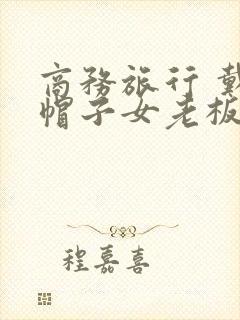 商務旅行 戴
帽子女老板
程嘉喜